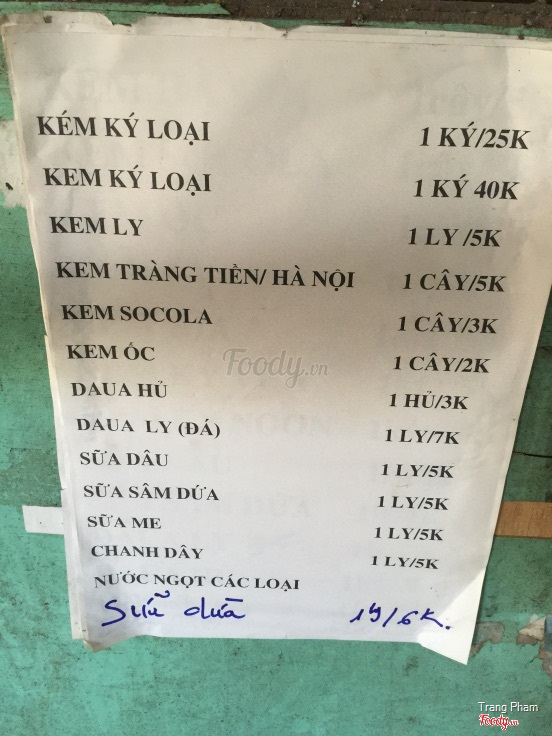 KÉM KÝ LOẠI 1 KÝ/25K
KEM KÝ LOẠI 1 KÝ 40K
KEM LY 1 LY /5K
KEM TRÀNG TIỀN/ HÀ NỘI 1 CÂY/5K
KEM SOCOLA 1 CÂY/3K
KEM ỐC 1 CÂY/2K
Foody.vn
DAUA HỦ 1 HỦ/3K
DAUA LY (ĐÁ) 1 LY/7K
SỮA DÂU 1 LY/5K
SỮA SÂM DỨA 1 LY/5K
SỮA ME 1 LY/5K
CHANH DÂY 1 LY/5K
NƯỚC NGỌT CÁC LOẠI
Sữa dừa 1y/6K.
Trang Pham
Foody.vn